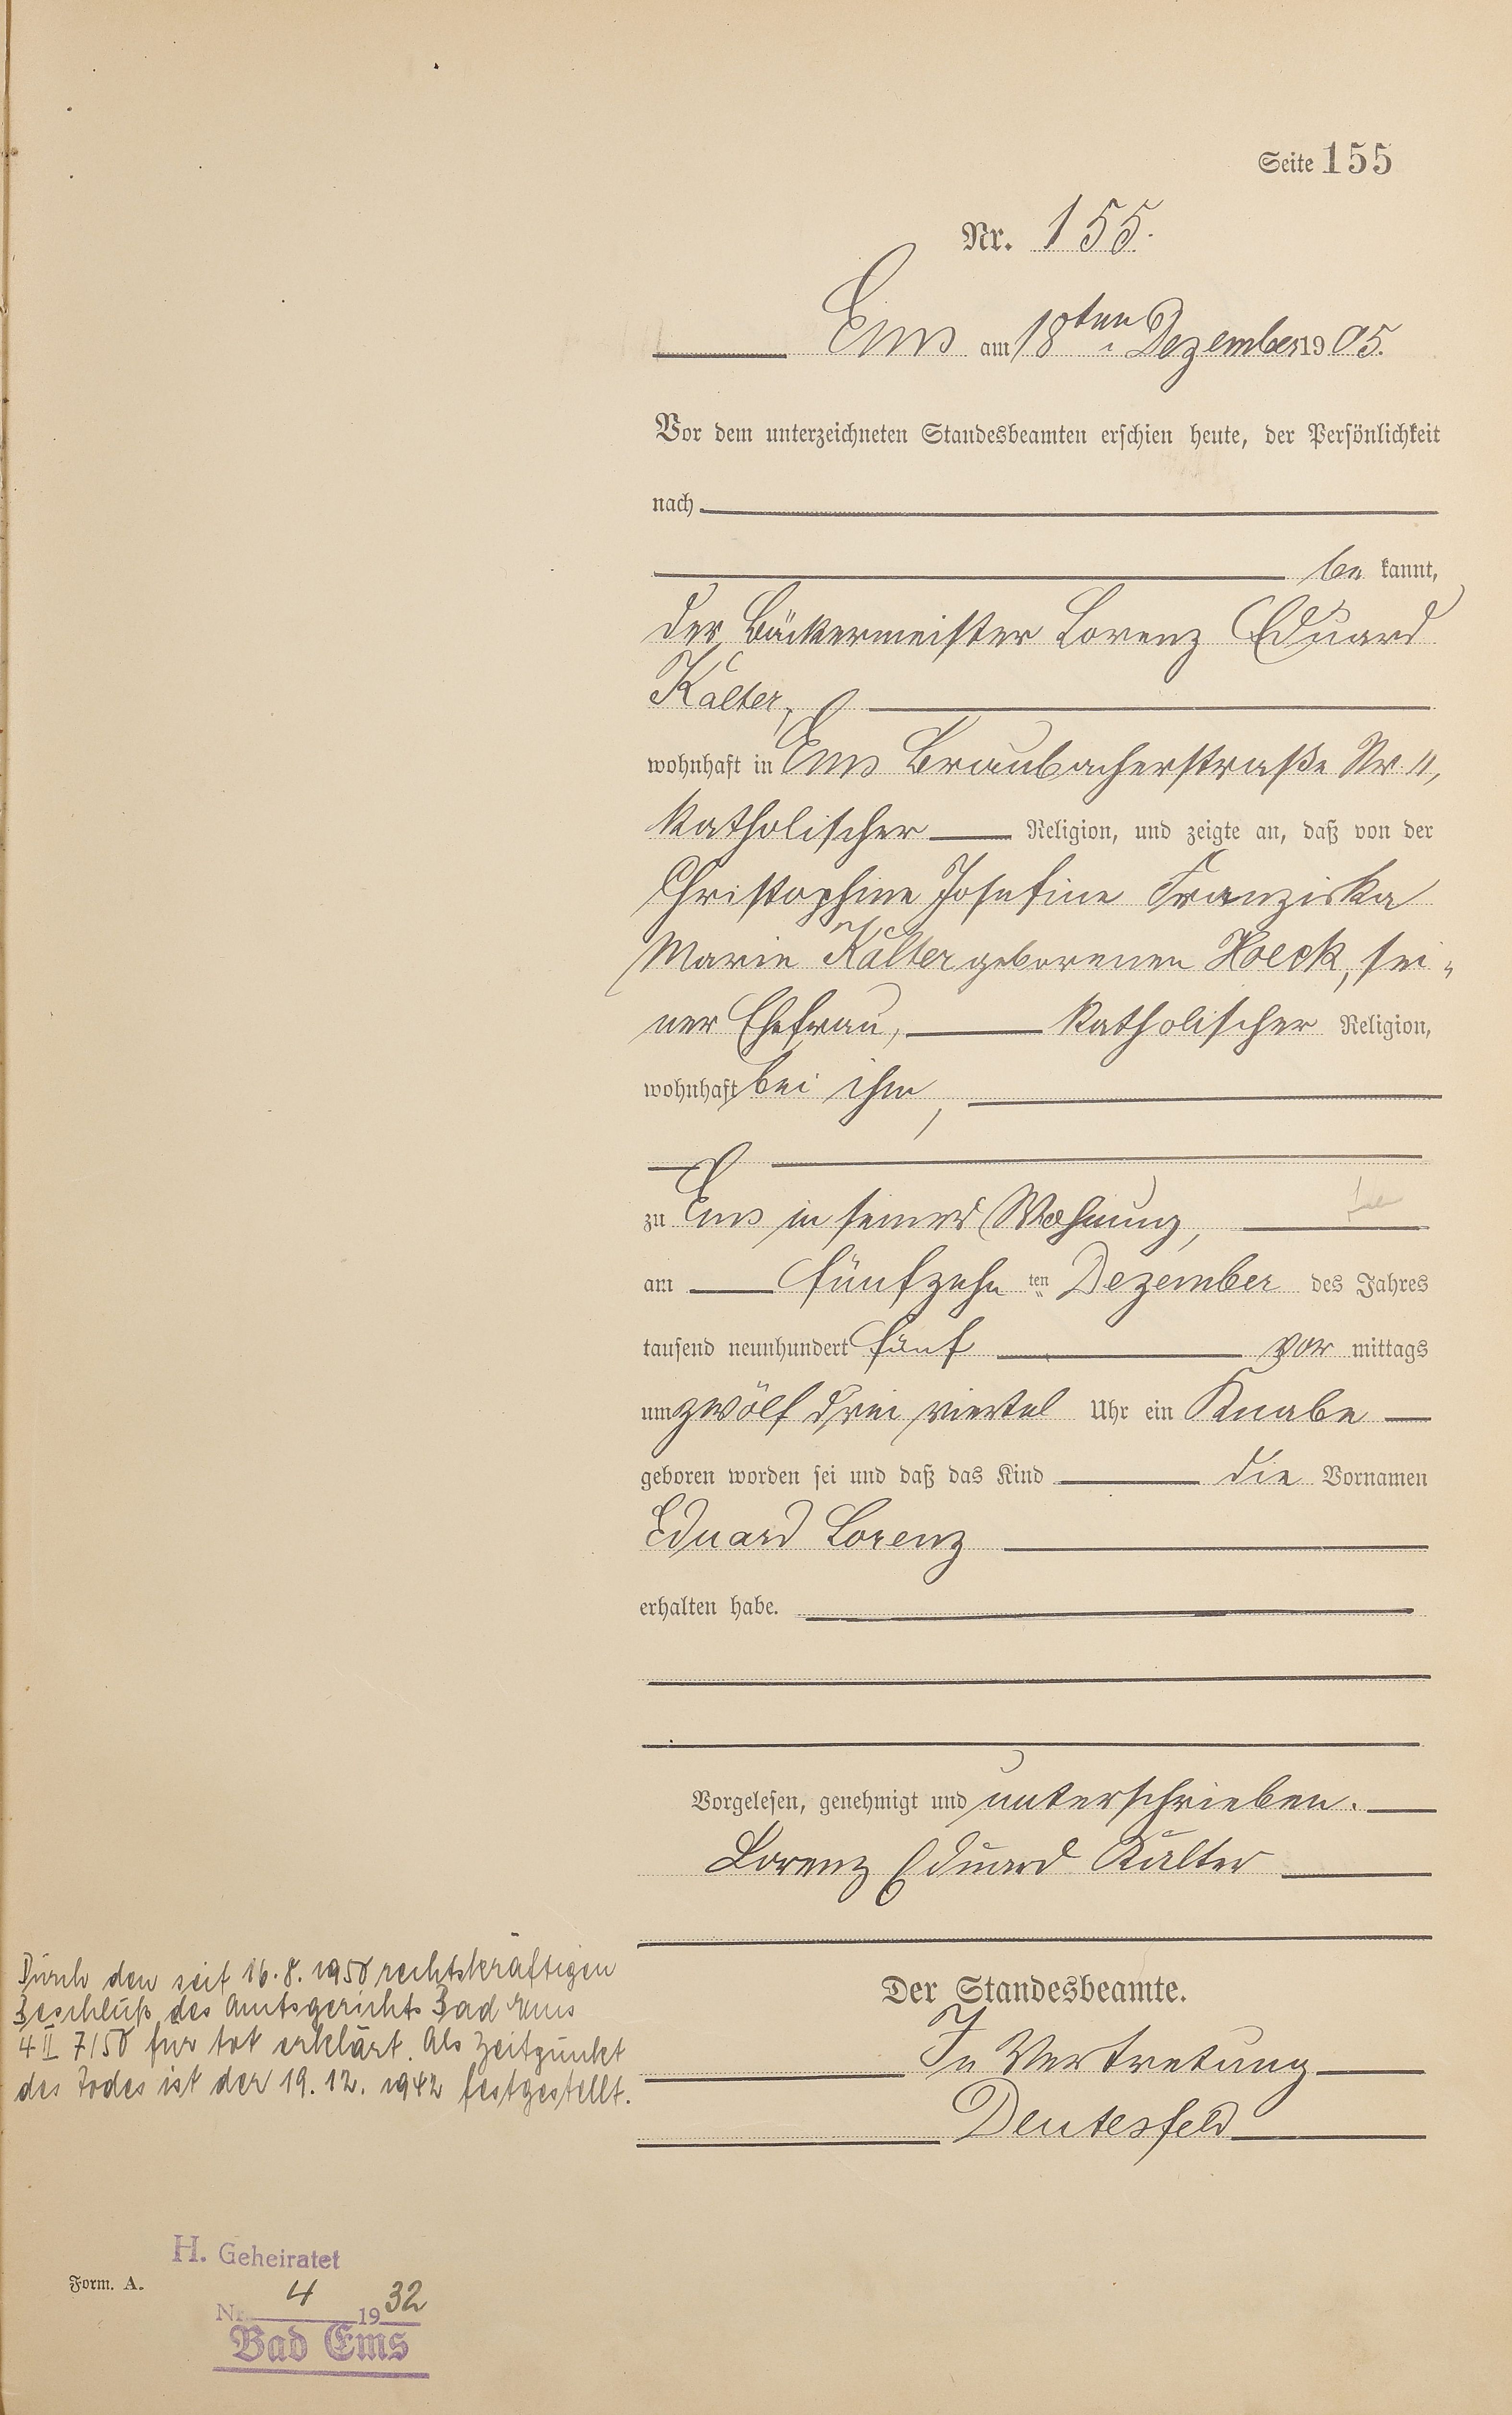 Seite 155
Nr. 155.
Ems am 18ten Dezember 1905.
Vor dem unterzeichneten Standesbeamten erschien heute, der Persönlichkeit
nach
be kannt,
der Bäckermeister Lorenz Eduard
Kalter,
wohnhaft in Ems Braubacherstraße Nr 11,
katholischer Religion, und zeigte an, daß von der
Christophine Josefine Franziska
Marie Kalter geborenen Hoeck, sei-
ner Ehefrau, katholischer Religion,
wohnhaft bei ihm,
zu Ems in seiner Wohnung,
am fünfzehn ten Dezember des Jahres
tausend neunhundert fünf vor mittags
um zwölf drei viertel Uhr ein Knabe
geboren worden sei und daß das Kind die Vornamen
Eduard Lorenz
erhalten habe.
Vorgelesen, genehmigt und unterschrieben.
Lorenz Eduard Kalter
Der Standesbeamte.
In Vertretung
Deutesfeld
Durch den seit 16.8.1950 rechtskräftigen
Beschluß des Amtsgerichts Bad Ems
4 II 7/50 für tot erklärt. Als Zeitpunkt
des Todes ist der 19.12.1942 festgestellt.
H. Geheiratet
Form. A.
Nr. 4 1932
Bad Ems